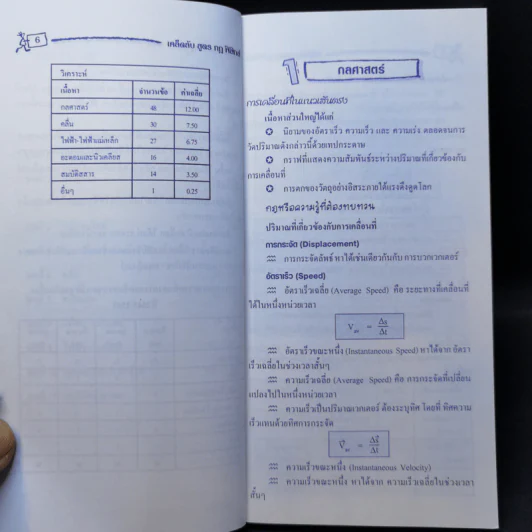 6
เคล็ดกับ สูตร กฏ ฟิสิกส์
วิเคราะห์
เนื้อหา จำนวนข้อ ค่าเฉลี่ย
กลศาสตร์ 48 12.00
คลื่น 30 7.50
ไฟฟ้า-ไฟฟ้าแม่เหล็ก 27 6.75
อะตอมและนิวเคลียส 16 4.00
สมบัติสสาร 14 3.50
อื่นๆ 1 0.25
1 กลศาสตร์
การเคลื่อนที่ในแนวเส้นตรง
เนื้อหาส่วนใหญ่ได้แก่
นิยามของอัตราเร็ว ความเร็ว และ ความเร่ง ตลอดจนการ
วัดปริมาณดังกล่าวนี้ด้วยเทปกระดาษ
กราฟที่แสดงความสัมพันธ์ระหว่างปริมาณที่เกี่ยวข้องกับ
การเคลื่อนที่
การตกของวัตถุอย่างอิสระภายใต้แรงดึงดูดโลก
กฎหรือความรู้ที่ต้องทบทวน
ปริมาณที่เกี่ยวข้องกับการเคลื่อนที่
การกระจัด (Displacement)
การกระจัดลัพธ์ หาได้เช่นเดียวกันกับ การบวกเวกเตอร์
อัตราเร็ว (Speed)
อัตราเร็วเฉลี่ย (Average Speed) คือ ระยะทางที่เคลื่อนที่
ได้ในหนึ่งหน่วยเวลา
V av = Δs / Δt
อัตราเร็วขณะหนึ่ง (Instantaneous Speed) หาได้จาก อัตรา
เร็วเฉลี่ยในช่วงเวลาสั้นๆ
ความเร็วเฉลี่ย (Average Speed) คือ การกระจัดที่เปลี่ยน
แปลงไปในหนึ่งหน่วยเวลา
ความเร็วเป็นปริมาณเวกเตอร์ ต้องระบุทิศ โดยที่ ทิศความ
เร็วแทนด้วยทิศการกระจัด
ความเร็วขณะหนึ่ง (Instantaneous Velocity)
ความเร็วขณะหนึ่ง หาได้จาก ความเร็วเฉลี่ยในช่วงเวลา
สั้นๆ